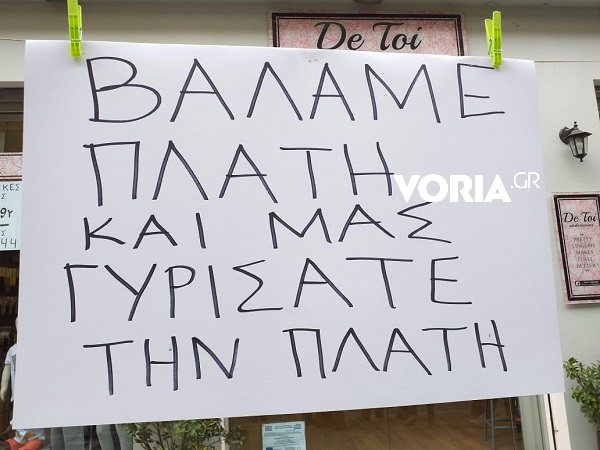 De Toi
ΒΑΛΑΜΕ
ΠΛΑΤΗ
VORIA.GR
ΚΑΙ ΜΑΣ
ΓΥΡΙΣΑΤΕ
ΤΗΝ ΠΛΑΤΗ
De Toi
PRETTY
LINGERIE
MAKES
IT ALL
BETTER
ΚΕΣ
44